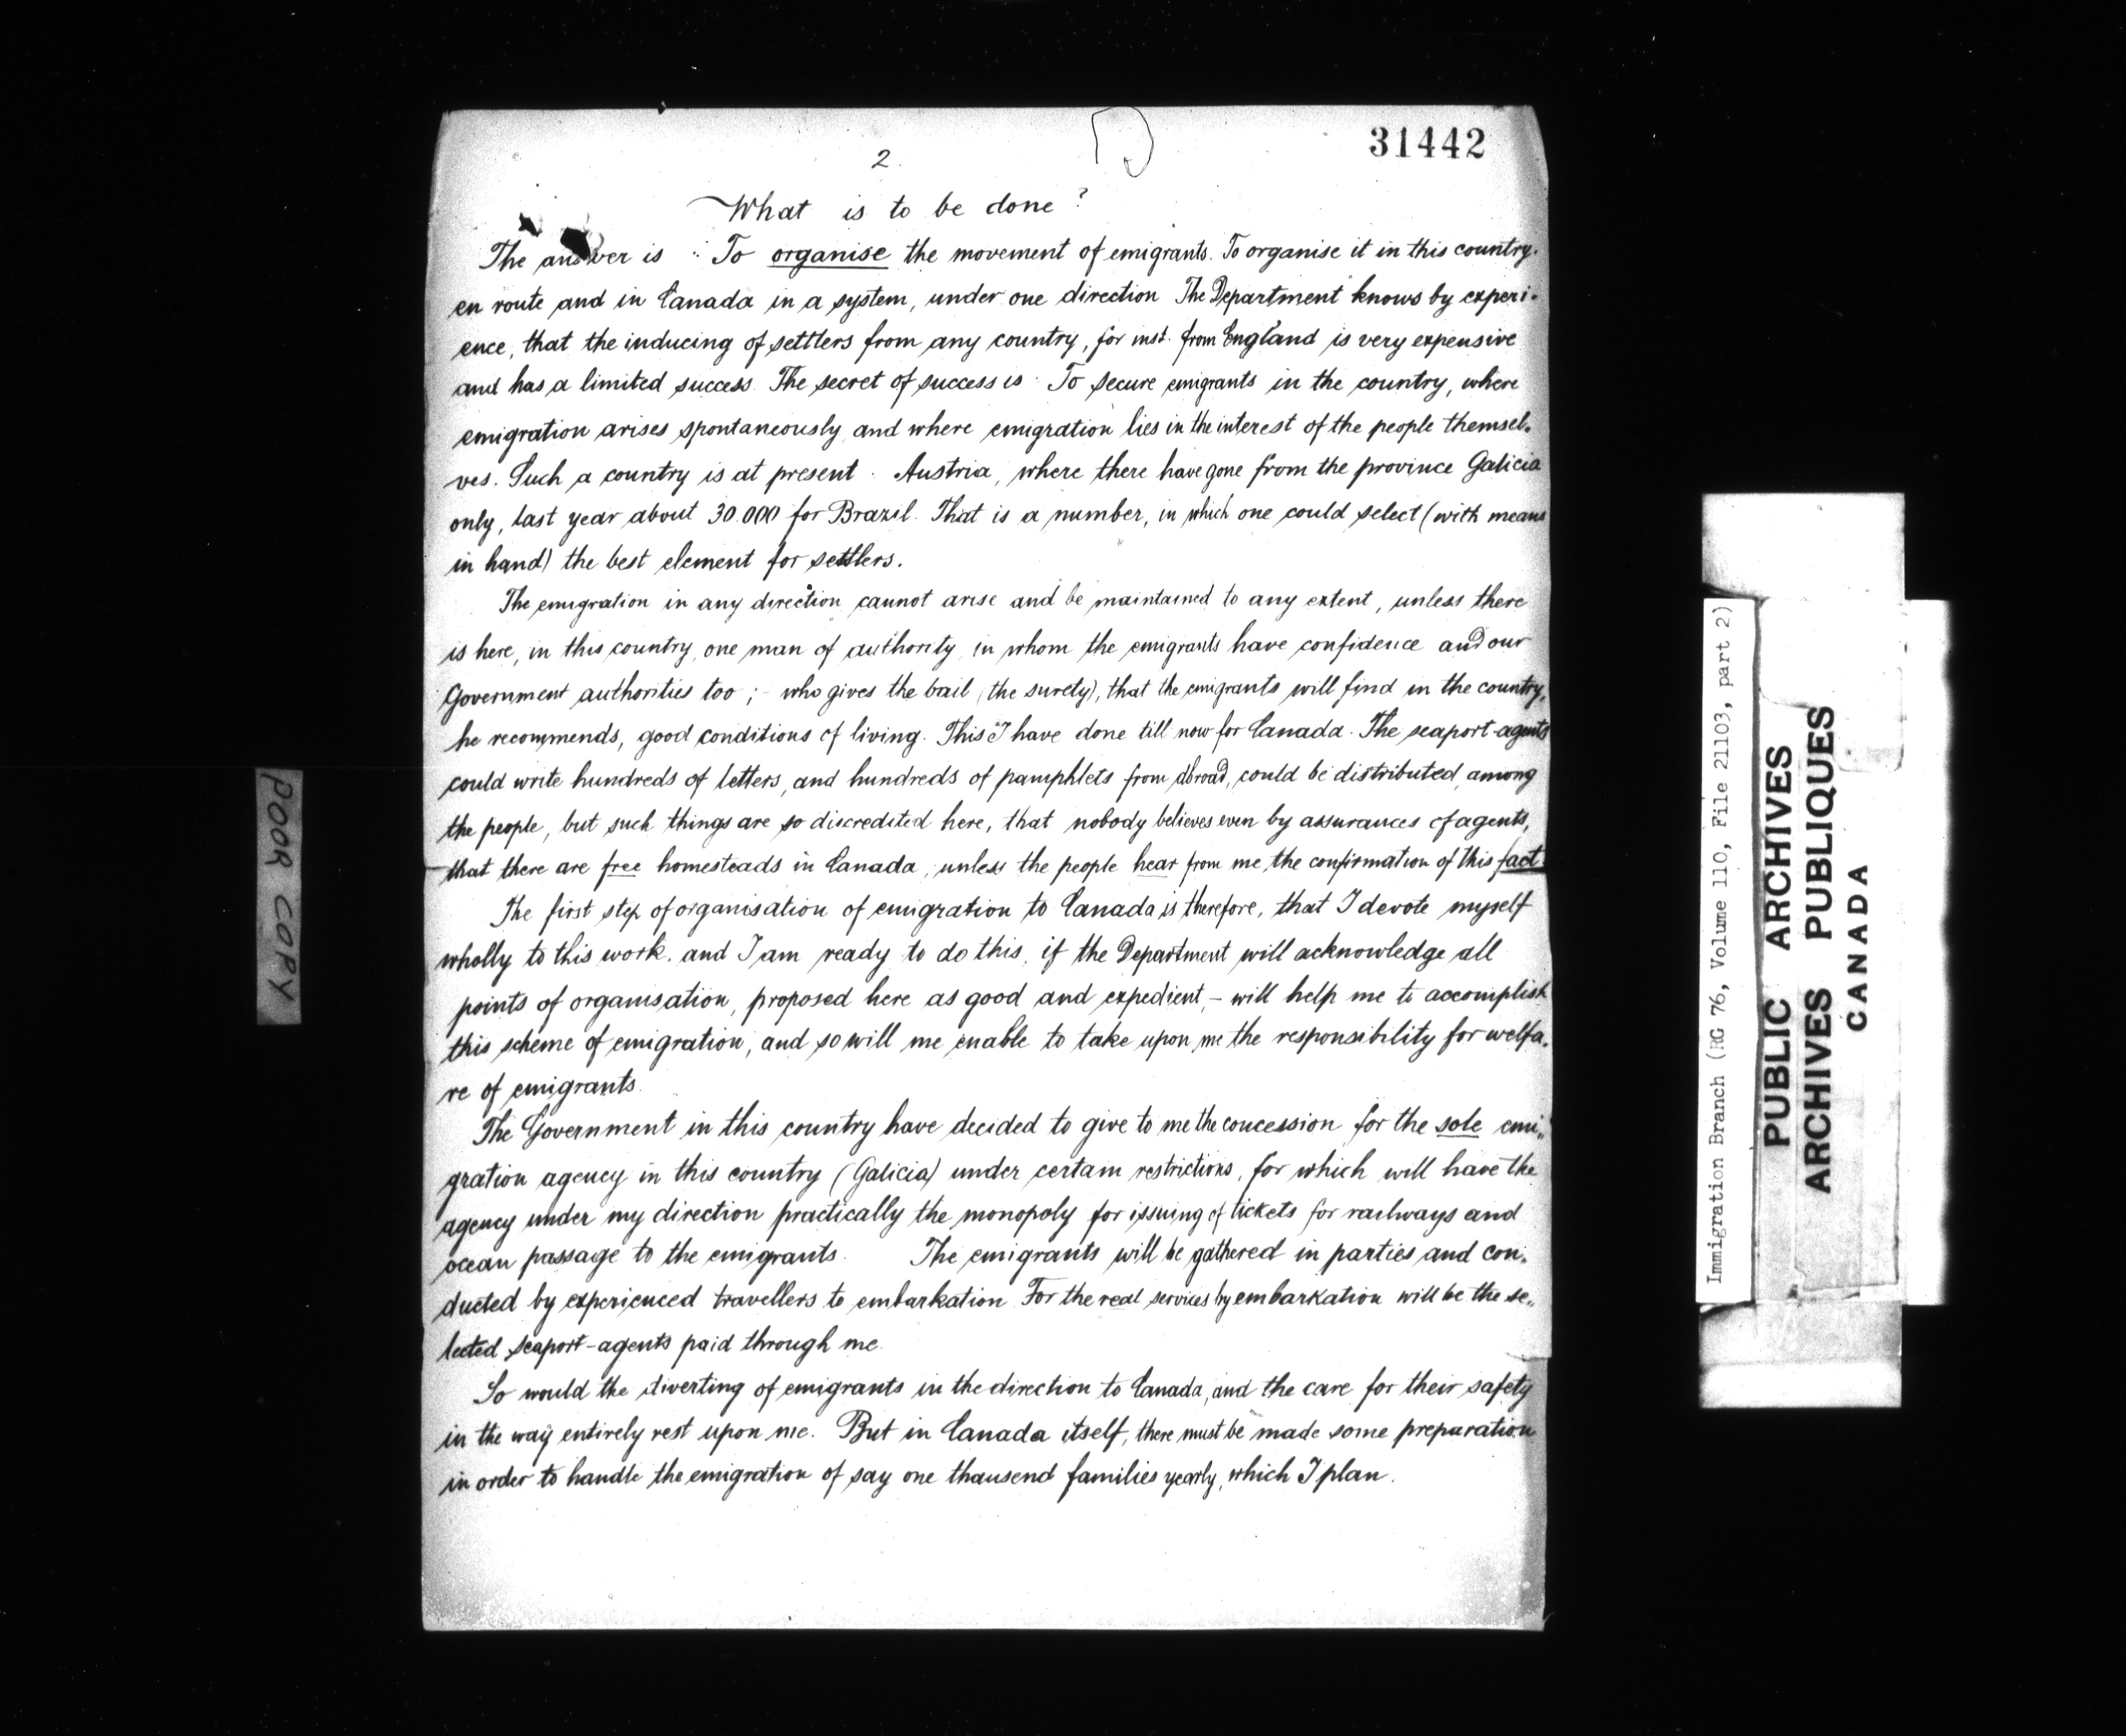 31442
2.
What is to be done?
The answer is : To organise the movement of emigrants. To organise it in this country.
en route and in Canada in a system, under one direction The Department knows by experi-
ence, that the inducing of settlers from any country, for inst. from England is very expensive
and has a limited success. The secret of success is : To secure emigrants in the country, where
emigration arises spontaneously and where emigration lies in the interest of the people themsel-
ves. Such a country is at present : Austria, where there have gone from the province Galicia
only, last year about 30.000 for Brazil. That is a number, in which one could select (with means
in hand) the best element for settlers.
The emigration in any direction cannot arise and be maintained to any extent, unless there
is here, in this country, one man of authority, in whom the emigrants have confidence and our
Government authorities too ; - who gives the bail (the surety), that the emigrants will find in the country,
he recommends, good conditions of living. This I have done till now for Canada. The seaport-agents
could write hundreds of letters, and hundreds of pamphlets from abroad, could be distributed among
the people, but such things are so discredited here, that nobody believes even by assurances of agents,
that there are free homesteads in Canada, unless the people hear from me the confirmation of this fact.
The first step of organisation of emigration to Canada is therefore, that I devote myself
wholly to this work, and I am ready to do this, if the Department will acknowledge all
points of organisation, proposed here as good and expedient, - will help me to accomplish
this scheme of emigration, and so will me enable to take upon me the responsibility for welfa-
re of emigrants.
The Government in this country have decided to give to me the concession for the sole emi-
gration agency in this country (Galicia) under certain restrictions, for which will have the
agency under my direction practically the monopoly for issuing of tickets for railways and
ocean passage to the emigrants. The emigrants will be gathered in parties and con-
ducted by experienced travellers to embarkation. For the real services by embarkation will be the se-
lected seaport-agents paid through me.
So would the diverting of emigrants in the direction to Canada, and the care for their safety
in the way entirely rest upon me. But in Canada itself, there must be made some preparation
in order to handle the emigration of say one thausend families yearly, which I plan.
POOR COPY
Immigration Branch (RG 76, Volume 110, File 21103, part 2)
PUBLIC ARCHIVES
ARCHIVES PUBLIQUES
CANADA